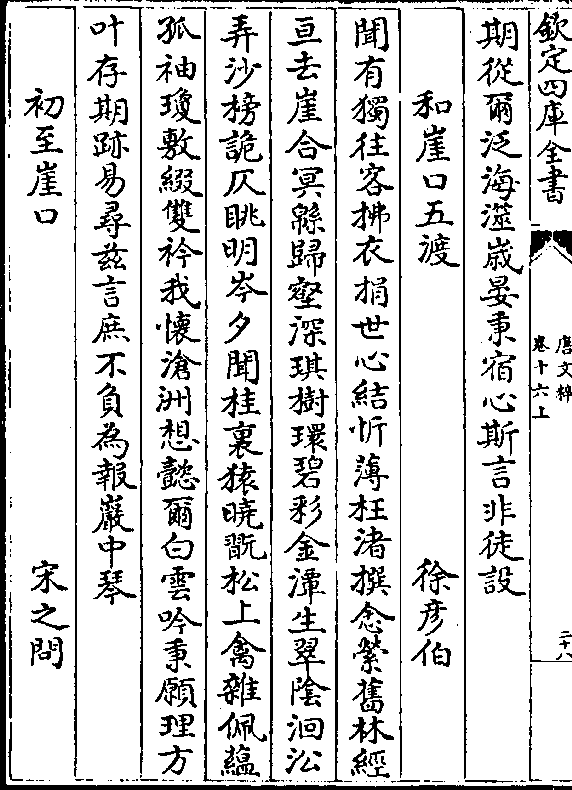 欽定四庫全書
唐文粹
卷十六上
二十八
期從爾泛海澨歲晏秉宿心斯言非徒設
和崖口五渡
徐彦伯
聞有獨往客拂衣捐世心結忻薄枉渚撰念縈舊林經
亘去崖合冥緜歸壑深琪樹環碧彩金潭生翠陰洄沿
弄沙榜詭仄眺明岑夕聞桂裏猿曉翫松上禽雜佩蘊
孤袖瓊敷綴雙衿我懷滄洲想懿爾白雲吟秉願理方
叶存期跡易尋兹言庶不負為報巖中琴
初至崖口
宋之問